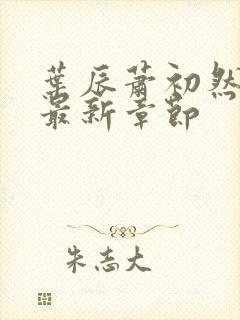 葉辰蕭初然
最新章節
朱志大